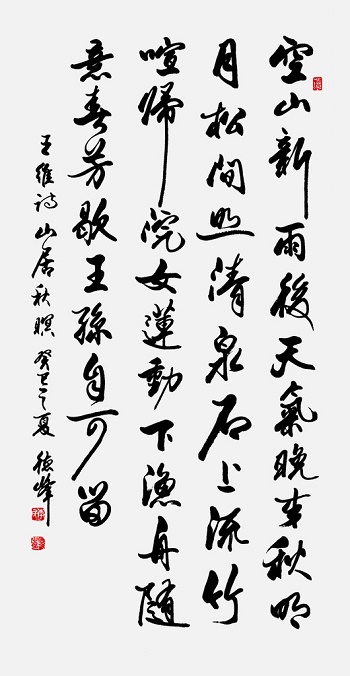 空山新雨後天氣晚來秋明
月松間照清泉石上流竹
喧歸浣女蓮動下漁舟隨
意春芳歇王孫自可留
王維詩山居秋暝癸巳之夏德峰